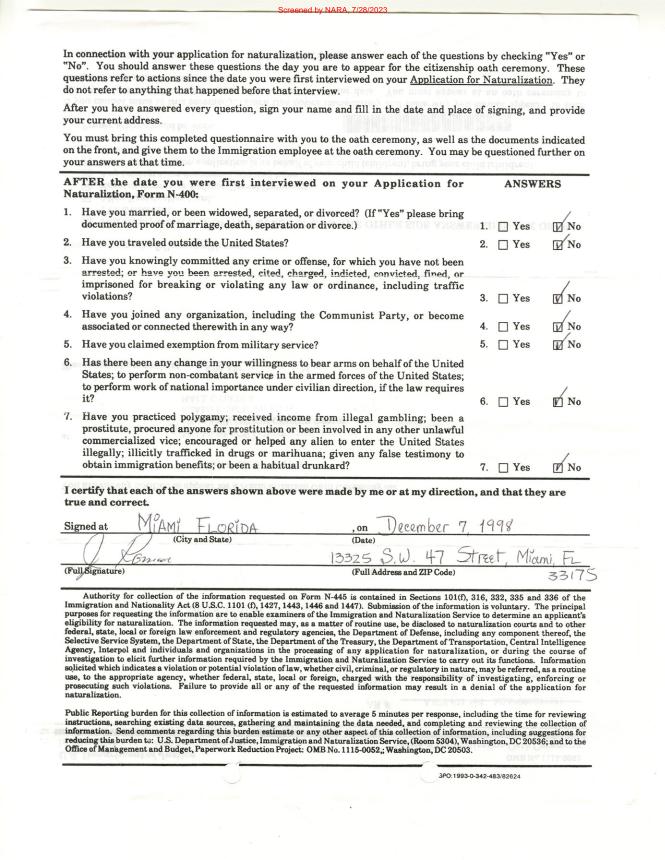 Screened by NARA, 7/28/2023
In connection with your application for naturalization, please answer each of the questions by checking "Yes" or
"No". You should answer these questions the day you are to appear for the citizenship oath ceremony. These
questions refer to actions since the date you were first interviewed on your Application for Naturalization. They
do not refer to anything that happened before that interview.
After you have answered every question, sign your name and fill in the date and place of signing, and provide
your current address.
You must bring this completed questionnaire with you to the oath ceremony, as well as the documents indicated
on the front, and give them to the Immigration employee at the oath ceremony. You may be questioned further on
your answers at that time.
AFTER the date you were first interviewed on your Application for ANSWERS
Naturaliztion, Form N-400:
1. Have you married, or been widowed, separated, or divorced? (If "Yes" please bring
documented proof of marriage, death, separation or divorce.) 1. Yes No
2. Have you traveled outside the United States? 2. Yes No
3. Have you knowingly committed any crime or offense, for which you have not been
arrested; or have you been arrested, cited, charged, indicted, convicted, fined, or
imprisoned for breaking or violating any law or ordinance, including traffic
violations? 3. Yes No
4. Have you joined any organization, including the Communist Party, or become
associated or connected therewith in any way? 4. Yes No
5. Have you claimed exemption from military service? 5. Yes No
6. Has there been any change in your willingness to bear arms on behalf of the United
States; to perform non-combatant service in the armed forces of the United States;
to perform work of national importance under civilian direction, if the law requires
it? 6. Yes No
7. Have you practiced polygamy; received income from illegal gambling; been a
prostitute, procured anyone for prostitution or been involved in any other unlawful
commercialized vice; encouraged or helped any alien to enter the United States
illegally; illicitly trafficked in drugs or marihuana; given any false testimony to
obtain immigration benefits; or been a habitual drunkard? 7. Yes No
I certify that each of the answers shown above were made by me or at my direction, and that they are
true and correct.
Signed at MIAMI FLORIDA , on December 7, 1998
(City and State) (Date)
13325 S.W. 47 Street, Miami, FL
(Full Signature) (Full Address and ZIP Code) 33175
Authority for collection of the information requested on Form N-445 is contained in Sections 101(f), 316, 332, 335 and 336 of the
Immigration and Nationality Act (8 U.S.C. 1101 (f), 1427, 1443, 1446 and 1447). Submission of the information is voluntary. The principal
purposes for requesting the information are to enable examiners of the Immigration and Naturalization Service to determine an applicant's
eligibility for naturalization. The information requested may, as a matter of routine use, be disclosed to naturalization courts and to other
federal, state, local or foreign law enforcement and regulatory agencies, the Department of Defense, including any component thereof, the
Selective Service System, the Department of State, the Department of the Treasury, the Department of Transportation, Central Intelligence
Agency, Interpol and individuals and organizations in the processing of any application for naturalization, or during the course of
investigation to elicit further information required by the Immigration and Naturalization Service to carry out its functions. Information
solicited which indicates a violation or potential violation of law, whether civil, criminal, or regulatory in nature, may be referred, as a routine
use, to the appropriate agency, whether federal, state, local or foreign, charged with the responsibility of investigating, enforcing or
prosecuting such violations. Failure to provide all or any of the requested information may result in a denial of the application for
naturalization.
Public Reporting burden for this collection of information is estimated to average 5 minutes per response, including the time for reviewing
instructions, searching existing data sources, gathering and maintaining the data needed, and completing and reviewing the collection of
information. Send comments regarding this burden estimate or any other aspect of this collection of information, including suggestions for
reducing this burden to: U.S. Department of Justice, Immigration and Naturalization Service, (Room 5304), Washington, DC 20536; and to the
Office of Management and Budget, Paperwork Reduction Project: OMB No. 1115-0052,; Washington, DC 20503.
3PO:1993-0-342-483/82624